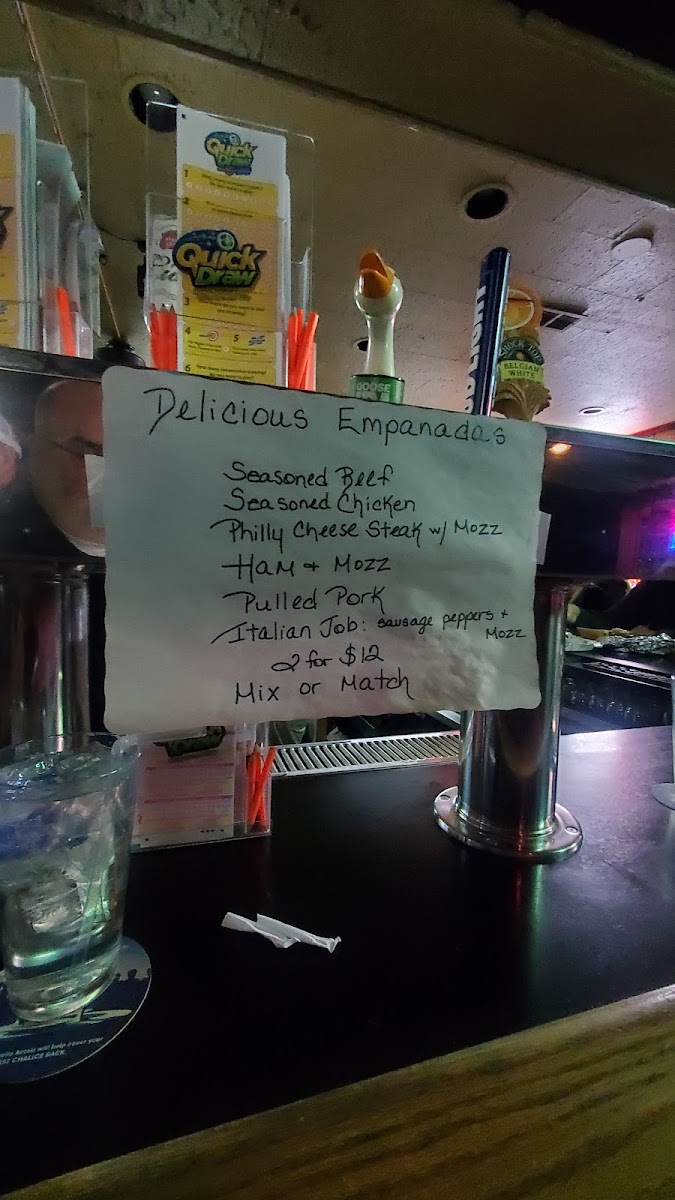 Quick
Draw
Quick
Draw
3
4
5
6
GOOSE
LIGHT
SHOCK TOP
BELGIAN
WHITE
Delicious Empanadas
Seasoned Beef
Seasoned Chicken
Philly Cheese Steak w/ Mozz
Ham + Mozz
Pulled Pork
Italian Job: sausage peppers +
Mozz
2 for $12
Mix or Match
CHALICE BACK.